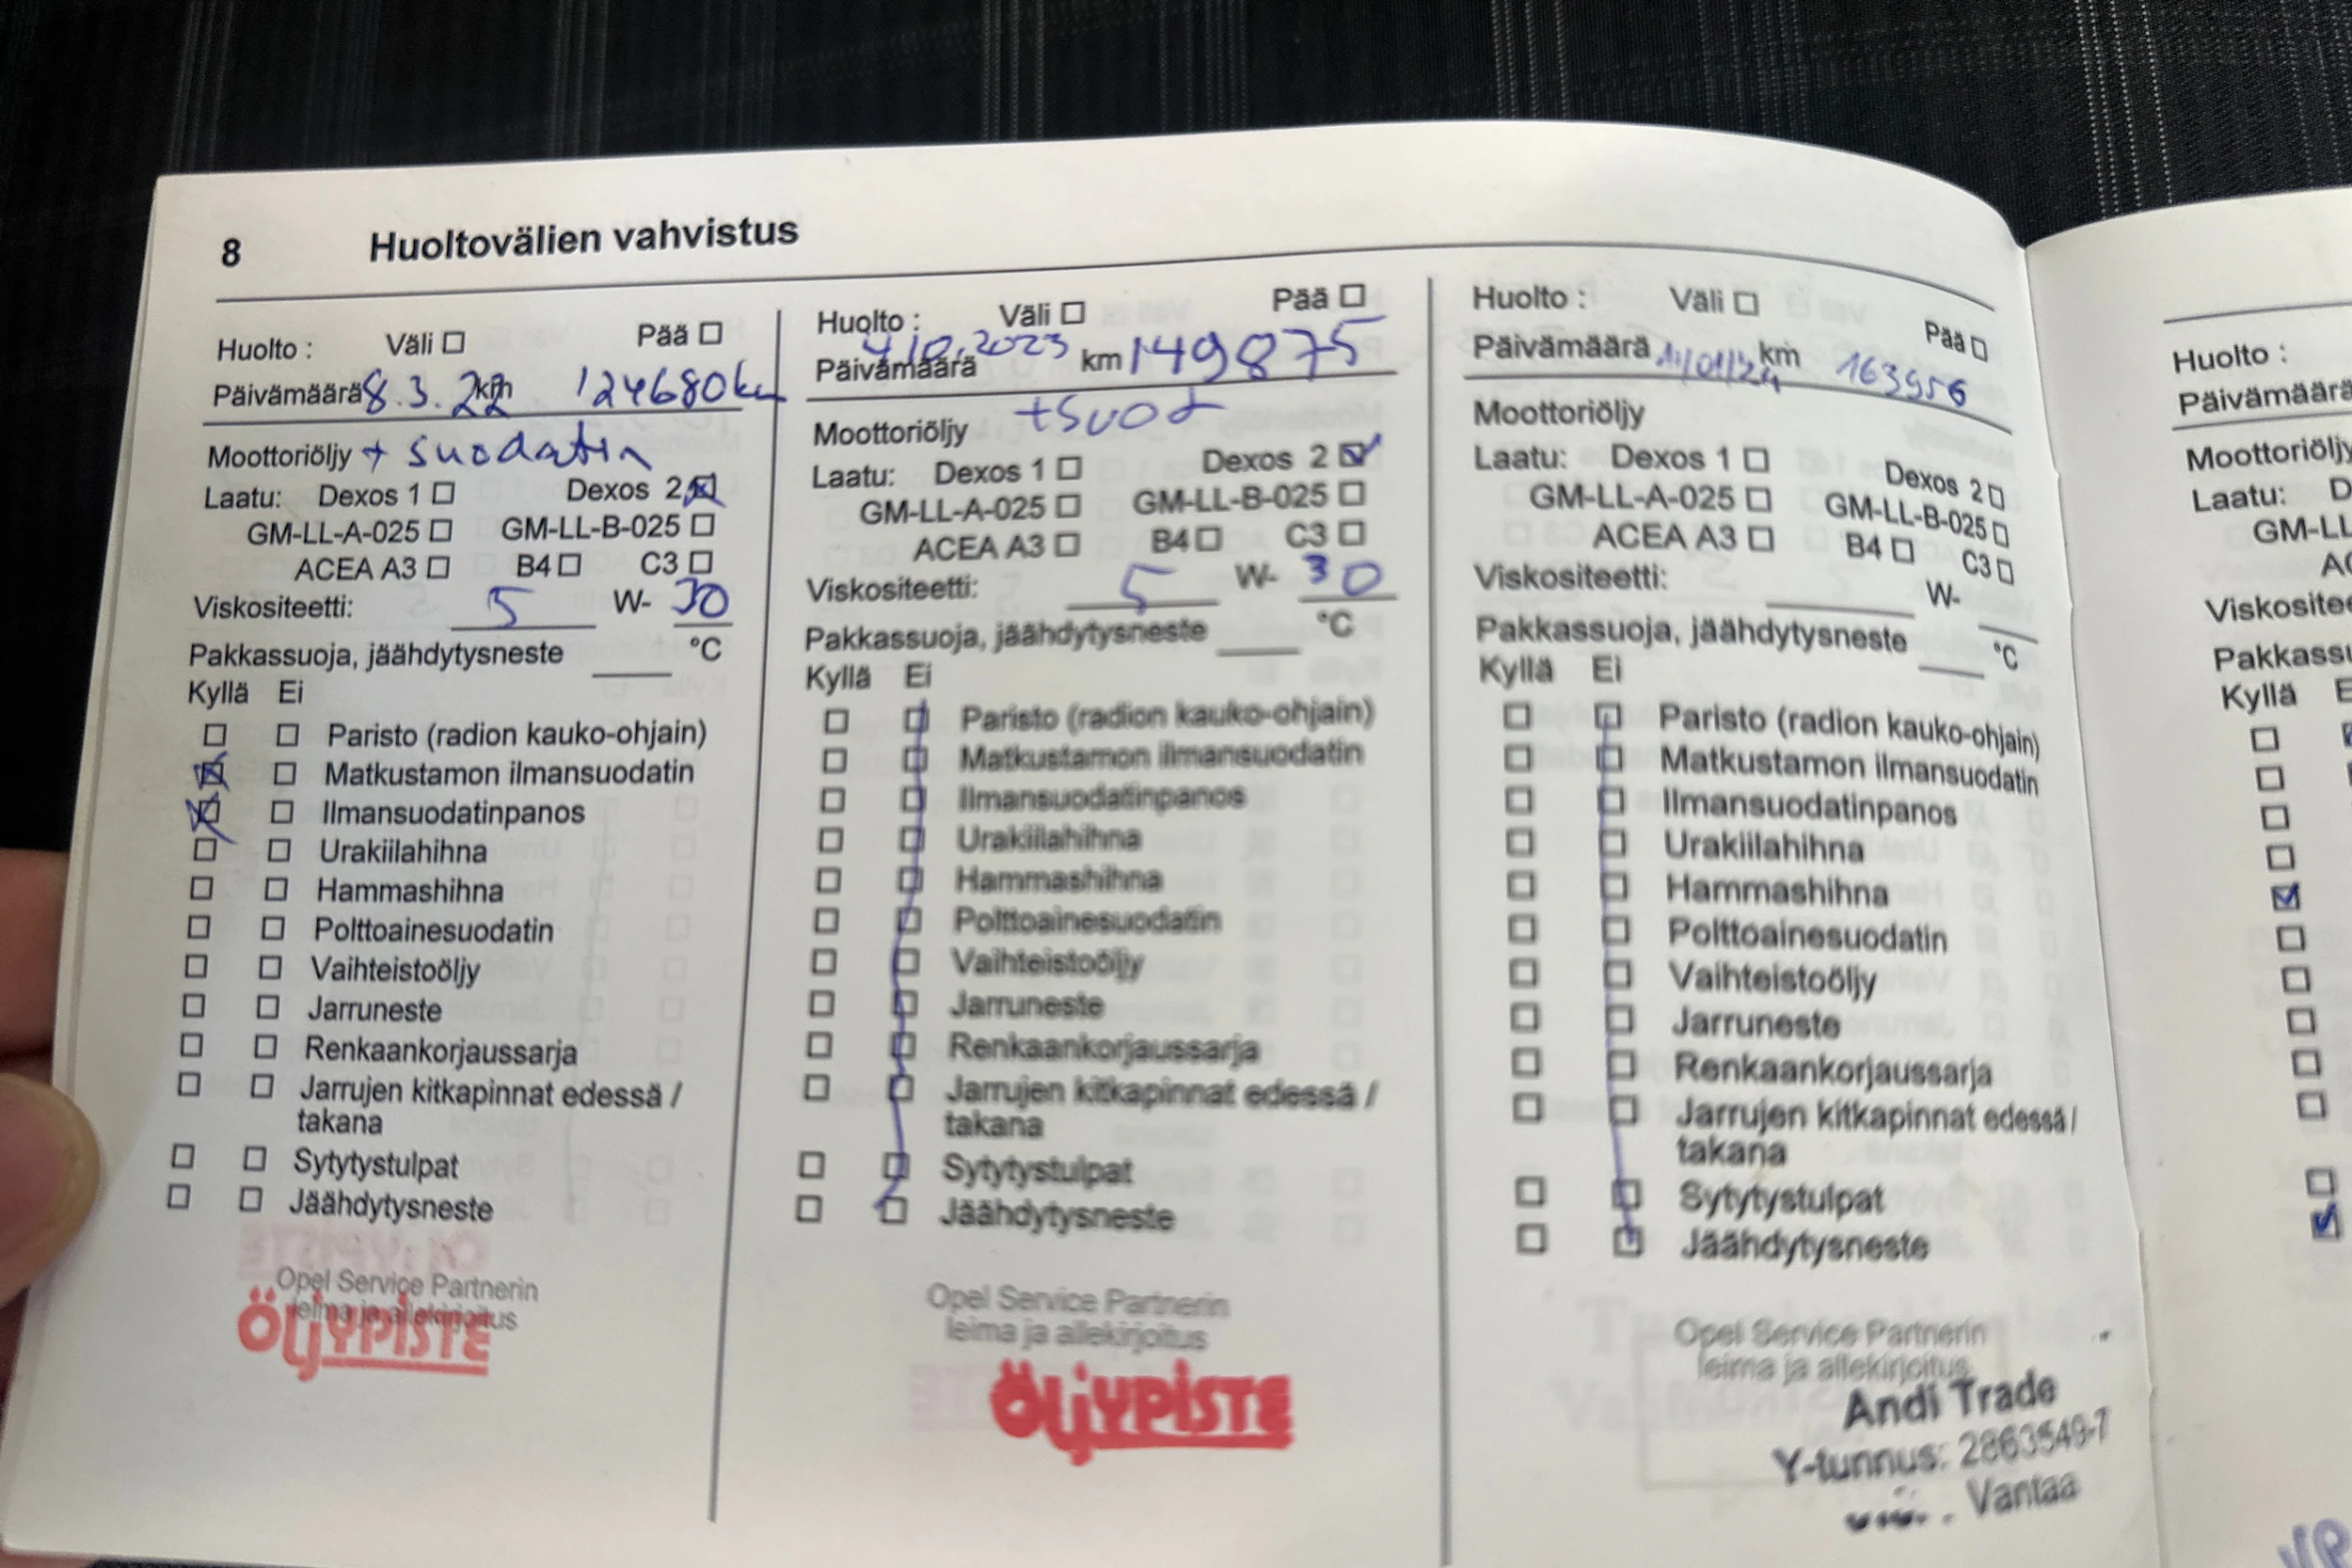 8 Huoltovälien vahvistus
Huolto : Väli ☐ Pää ☐
Päivämäärä 8.3.22 km 124680km
Moottoriöljy + suodatin
Laatu: Dexos 1 ☐ Dexos 2 ☒
GM-LL-A-025 ☐ GM-LL-B-025 ☐
ACEA A3 ☐ B4 ☐ C3 ☐
Viskositeetti: 5 W- 30
Pakkassuoja, jäähdytysneste ____ °C
Kyllä Ei
☐ ☐ Paristo (radion kauko-ohjain)
☒ ☐ Matkustamon ilmansuodatin
☒ ☐ Ilmansuodatinpanos
☐ ☐ Urakiilahihna
☐ ☐ Hammashihna
☐ ☐ Polttoainesuodatin
☐ ☐ Vaihteistoöljy
☐ ☐ Jarruneste
☐ ☐ Renkaankorjaussarja
☐ ☐ Jarrujen kitkapinnat edessä /
takana
☐ ☐ Sytytystulpat
☐ ☐ Jäähdytysneste
Opel Service Partnerin
leima ja allekirjoitus
ÖLJYPISTE
Huolto : Väli ☐ Pää ☐
Päivämäärä 4.10.2023 km 149875
Moottoriöljy +suod
Laatu: Dexos 1 ☐ Dexos 2 ☑
GM-LL-A-025 ☐ GM-LL-B-025 ☐
ACEA A3 ☐ B4 ☐ C3 ☐
Viskositeetti: 5 W- 30
Pakkassuoja, jäähdytysneste ____ °C
Kyllä Ei
☐ ☐ Paristo (radion kauko-ohjain)
☐ ☐ Matkustamon ilmansuodatin
☐ ☐ Ilmansuodatinpanos
☐ ☐ Urakiilahihna
☐ ☐ Hammashihna
☐ ☐ Polttoainesuodatin
☐ ☐ Vaihteistoöljy
☐ ☐ Jarruneste
☐ ☐ Renkaankorjaussarja
☐ ☐ Jarrujen kitkapinnat edessä /
takana
☐ ☐ Sytytystulpat
☐ ☐ Jäähdytysneste
Opel Service Partnerin
leima ja allekirjoitus
ÖLJYPISTE
Huolto : Väli ☐ Pää ☐
Päivämäärä 11/01/24 km 163956
Moottoriöljy
Laatu: Dexos 1 ☐ Dexos 2 ☐
GM-LL-A-025 ☐ GM-LL-B-025 ☐
ACEA A3 ☐ B4 ☐ C3 ☐
Viskositeetti: ____ W- ____
Pakkassuoja, jäähdytysneste ____ °C
Kyllä Ei
☐ ☐ Paristo (radion kauko-ohjain)
☐ ☐ Matkustamon ilmansuodatin
☐ ☐ Ilmansuodatinpanos
☐ ☐ Urakiilahihna
☐ ☐ Hammashihna
☐ ☐ Polttoainesuodatin
☐ ☐ Vaihteistoöljy
☐ ☐ Jarruneste
☐ ☐ Renkaankorjaussarja
☐ ☐ Jarrujen kitkapinnat edessä /
takana
☐ ☐ Sytytystulpat
☐ ☐ Jäähdytysneste
Opel Service Partnerin
leima ja allekirjoitus
Andi Trade
Y-tunnus: 2863549-7
Vantaa
Huolto :
Päivämäärä
Moottoriöljy
Laatu: D
GM-LL
AC
Viskositee
Pakkassu
Kyllä E